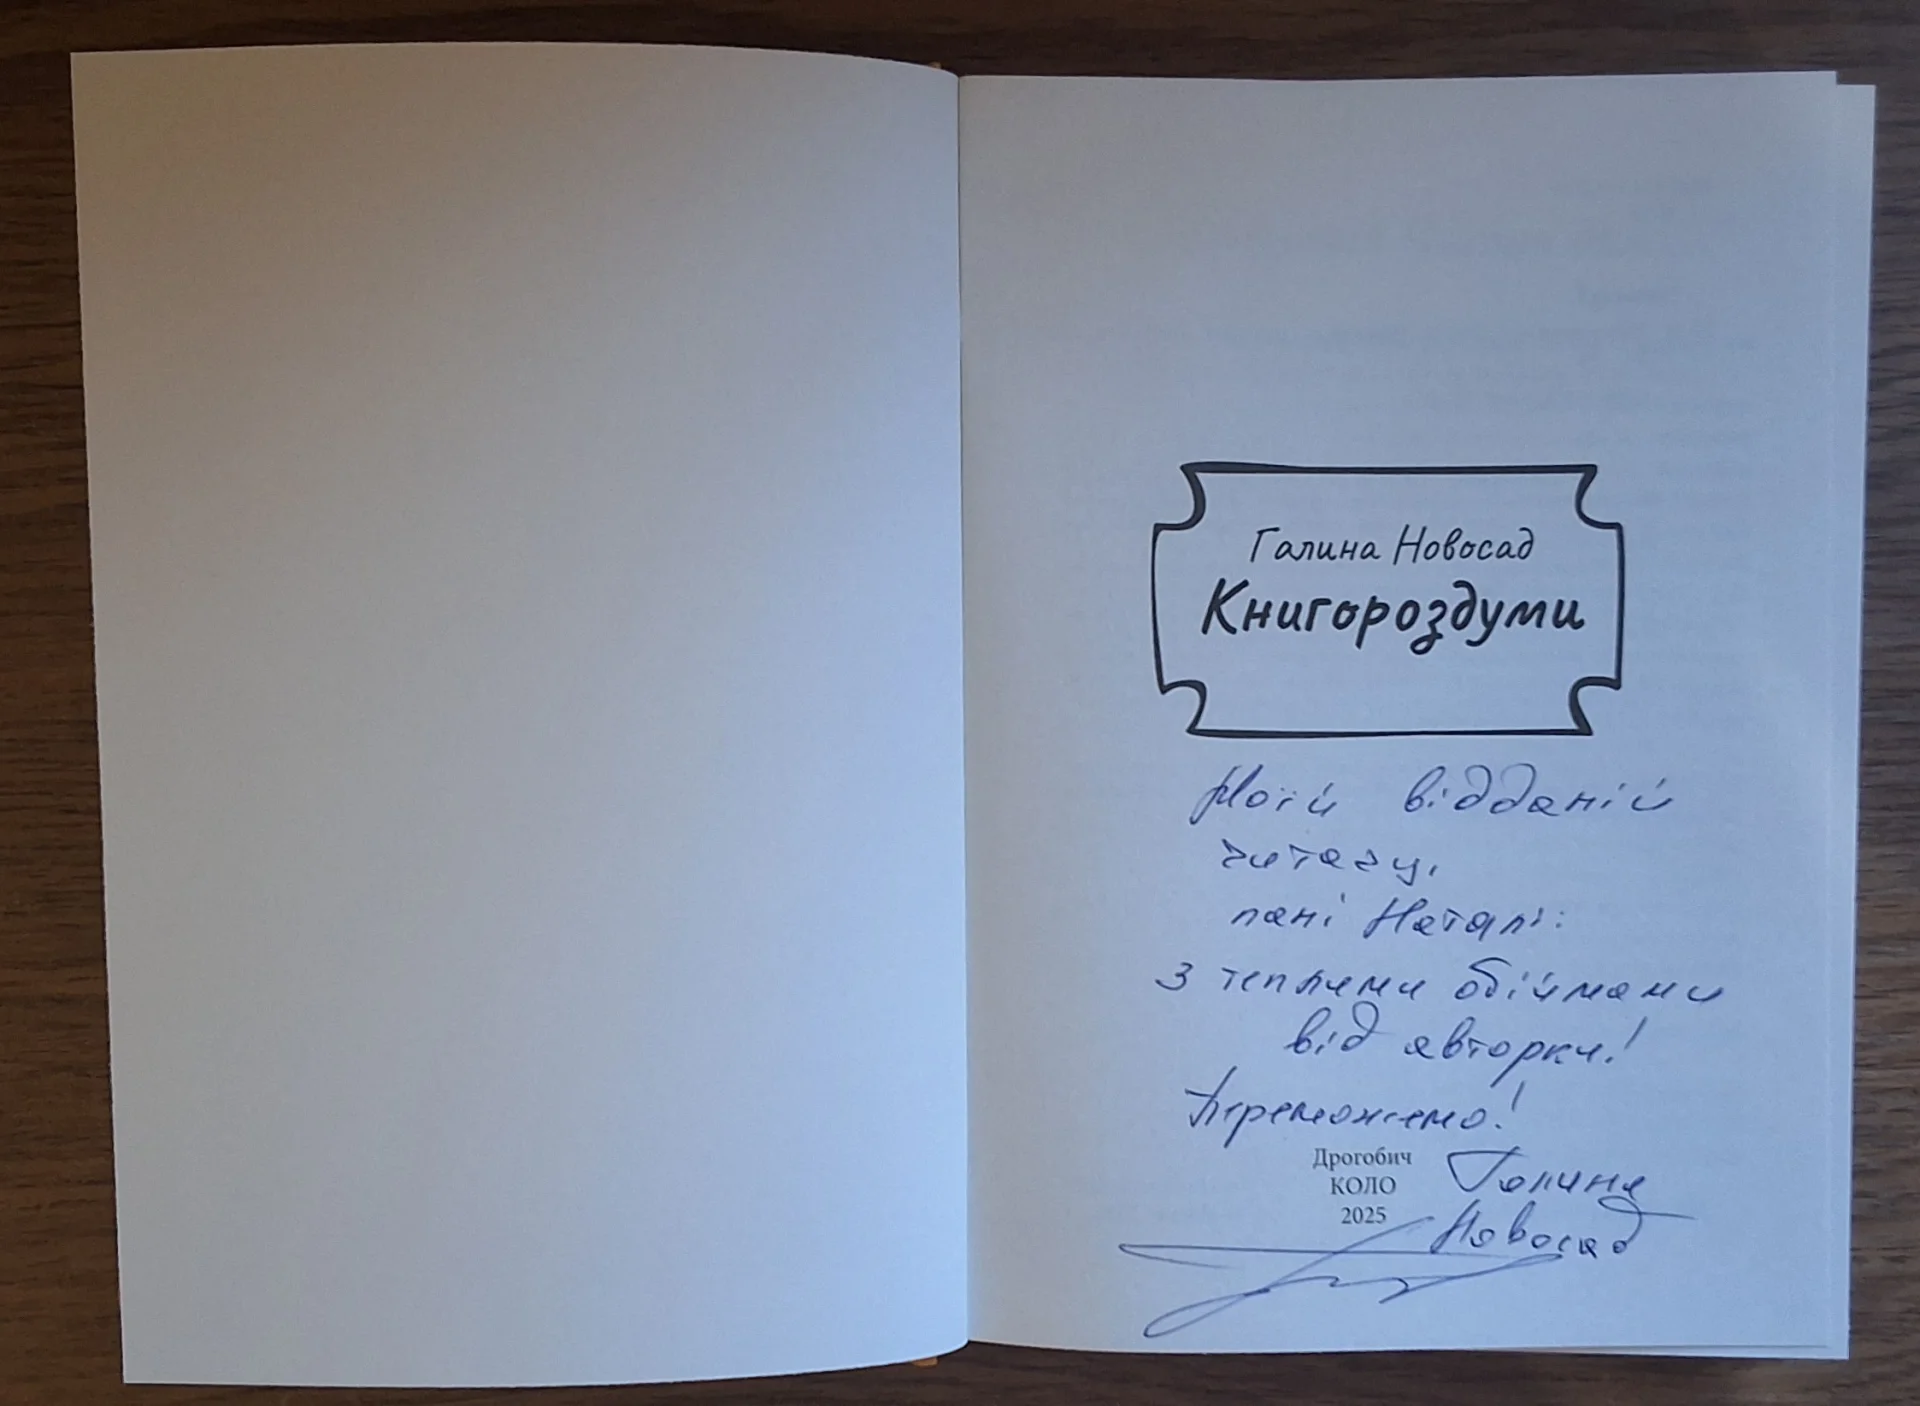 Галина Новосад
Книгороздуми
Моїй відданій
читачці,
пані Наталі:
з теплими обіймами
від авторки!
Переможемо!
Дрогобич
КОЛО
2025
Галина
Новосад